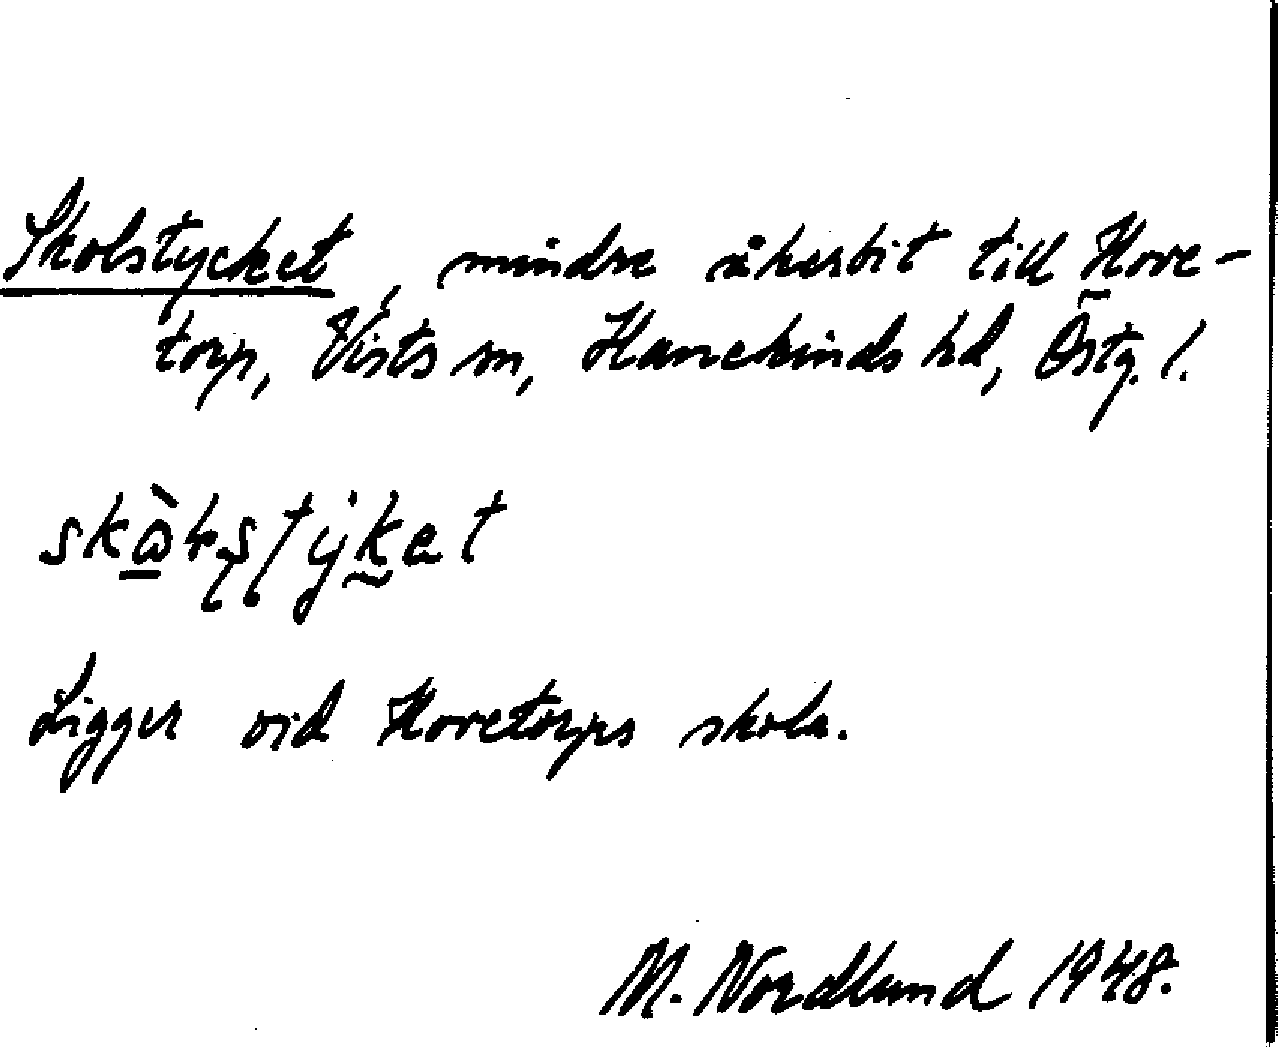 Skolstycket, mindre åkerbit till Hove-
torp, Vists sn, Hanekinds hd, Östg. l.
Ligger vid Hovetorps skola.
M. Nordlund 1948.